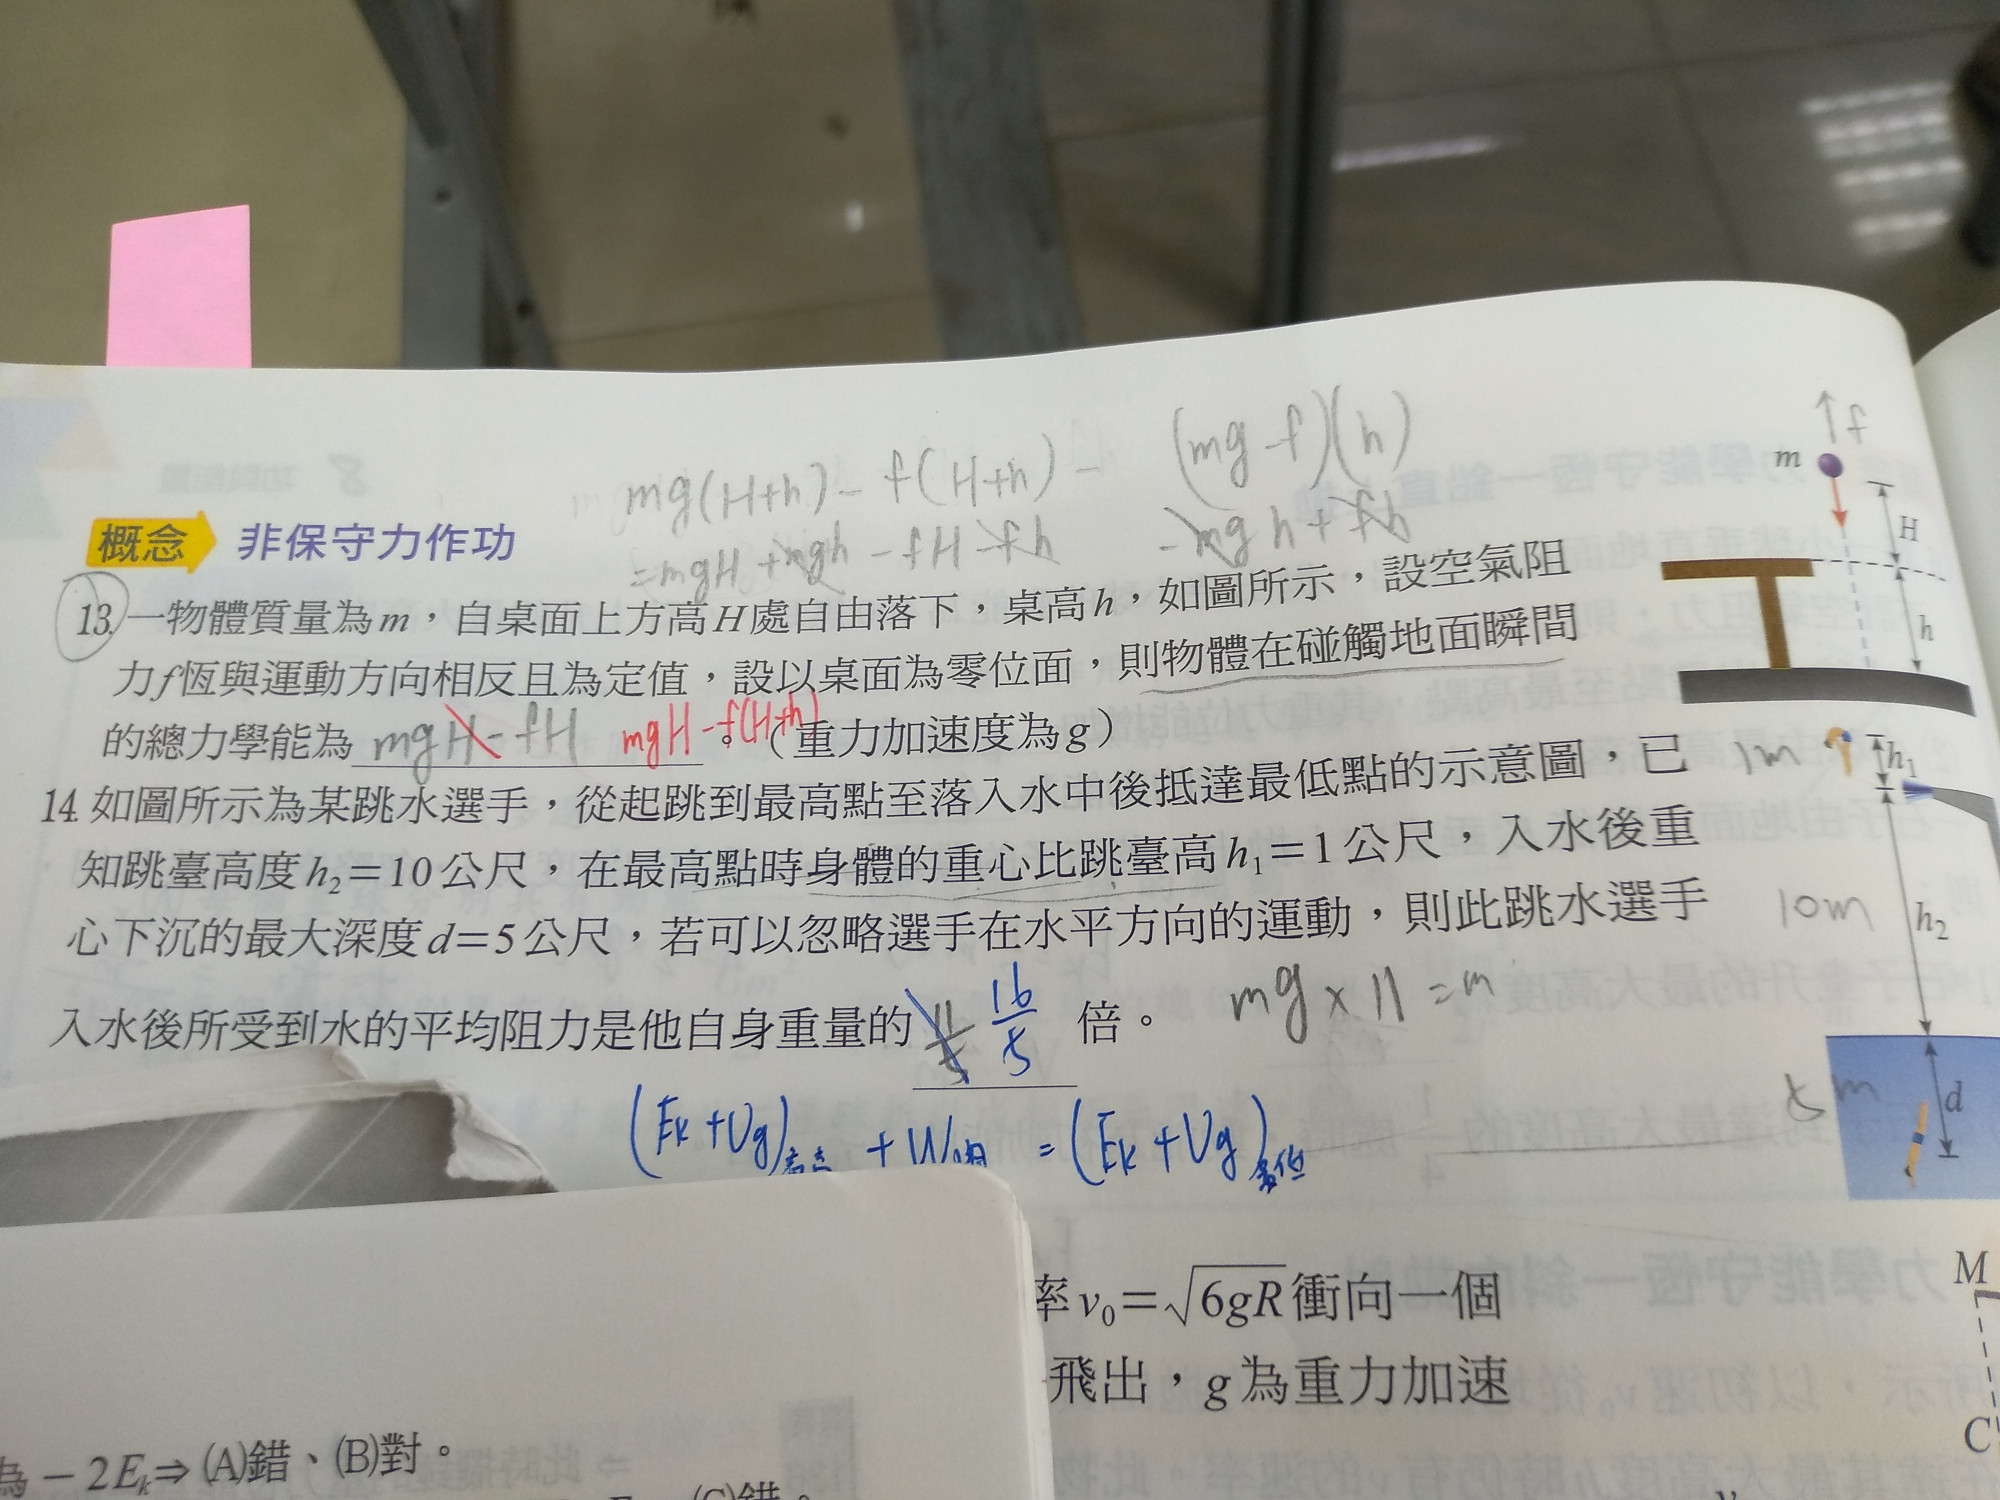 mg(H+h) - f(H+h) - (mg-f)(h)
=mgH +mgh - fH - fh - mgh + fh
概念 非保守力作功
13. 一物體質量為m，自桌面上方高H處自由落下，桌高h，如圖所示，設空氣阻
力f恆與運動方向相反且為定值，設以桌面為零位面，則物體在碰觸地面瞬間
的總力學能為 mgH-fH mgH-f(H+h)。（重力加速度為g）
↑f
m
H
h
14. 如圖所示為某跳水選手，從起跳到最高點至落入水中後抵達最低點的示意圖，已
知跳臺高度h₂=10公尺，在最高點時身體的重心比跳臺高h₁=1公尺，入水後重
心下沉的最大深度d=5公尺，若可以忽略選手在水平方向的運動，則此跳水選手
入水後所受到水的平均阻力是他自身重量的 11/5 16/5 倍。
mg×11=m
1m h₁
10m h₂
5m d
(Ek+Ug) + W = (Ek+Ug)
率v₀=√6gR衝向一個
飛出，g為重力加速
M
C
為-2Eₖ⇒(A)錯、(B)對。
(C)錯。